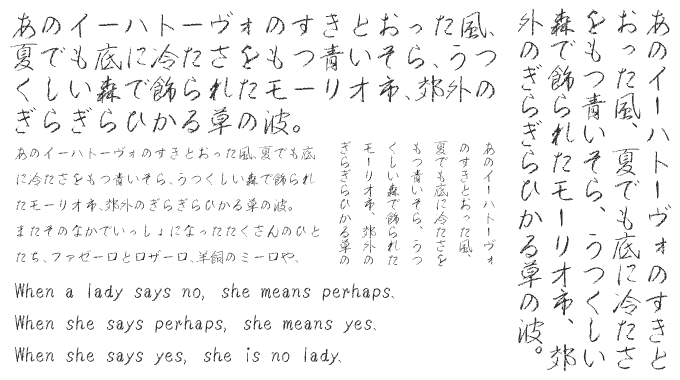 あのイーハトーヴォのすきとおった風、
夏でも底に冷たさをもつ青いそら、うつ
くしい森で飾られたモーリオ市、郊外の
ぎらぎらひかる草の波。
あのイーハトーヴォのすきとおった風、夏でも底
に冷たさをもつ青いそら、うつくしい森で飾られ
たモーリオ市、郊外のぎらぎらひかる草の波。
またそのなかでいっしょになったたくさんのひと
たち、ファゼーロとロザーロ、羊飼のミーロや、
あのイーハトーヴォ
のすきとおった風、
夏でも底に冷たさを
もつ青いそら、うつ
くしい森で飾られた
モーリオ市、郊外の
ぎらぎらひかる草の
When a lady says no, she means perhaps.
When she says perhaps, she means yes.
When she says yes, she is no lady.
あのイーハトーヴォのすきと
おった風、夏でも底に冷たさ
をもつ青いそら、うつくしい
森で飾られたモーリオ市、郊
外のぎらぎらひかる草の波。